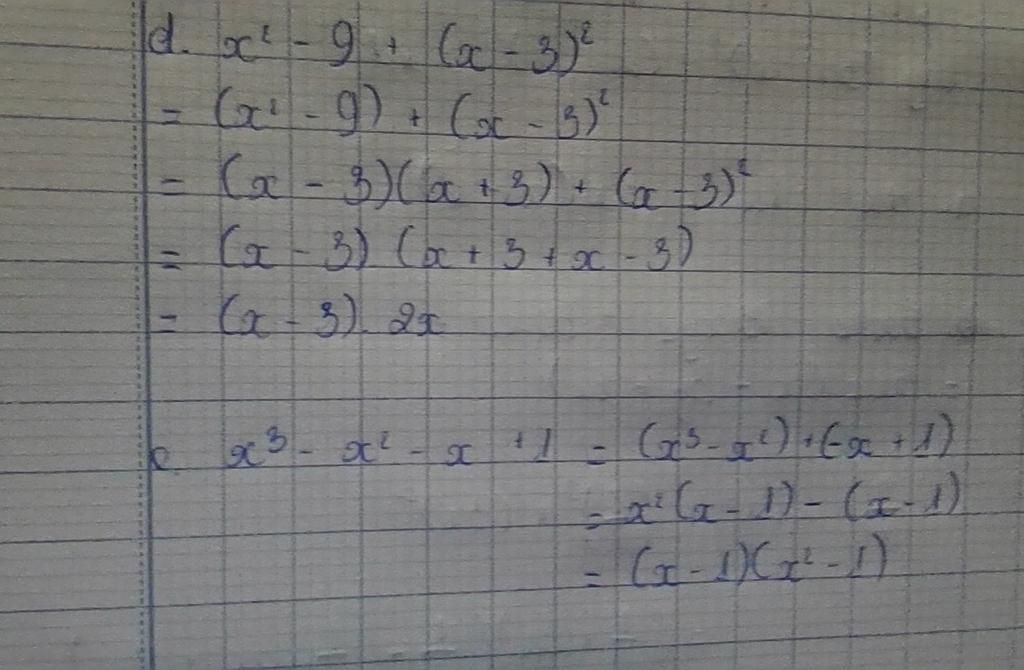 d. x² - 9 + (x - 3)²
= (x² - 9) + (x - 3)²
= (x - 3)(x + 3) + (x - 3)²
= (x - 3) (x + 3 + x - 3)
= (x - 3). 2x
c. x³ - x² - x + 1 = (x³ - x²) + (-x + 1)
= x² (x - 1) - (x - 1)
= (x - 1)(x² - 1)